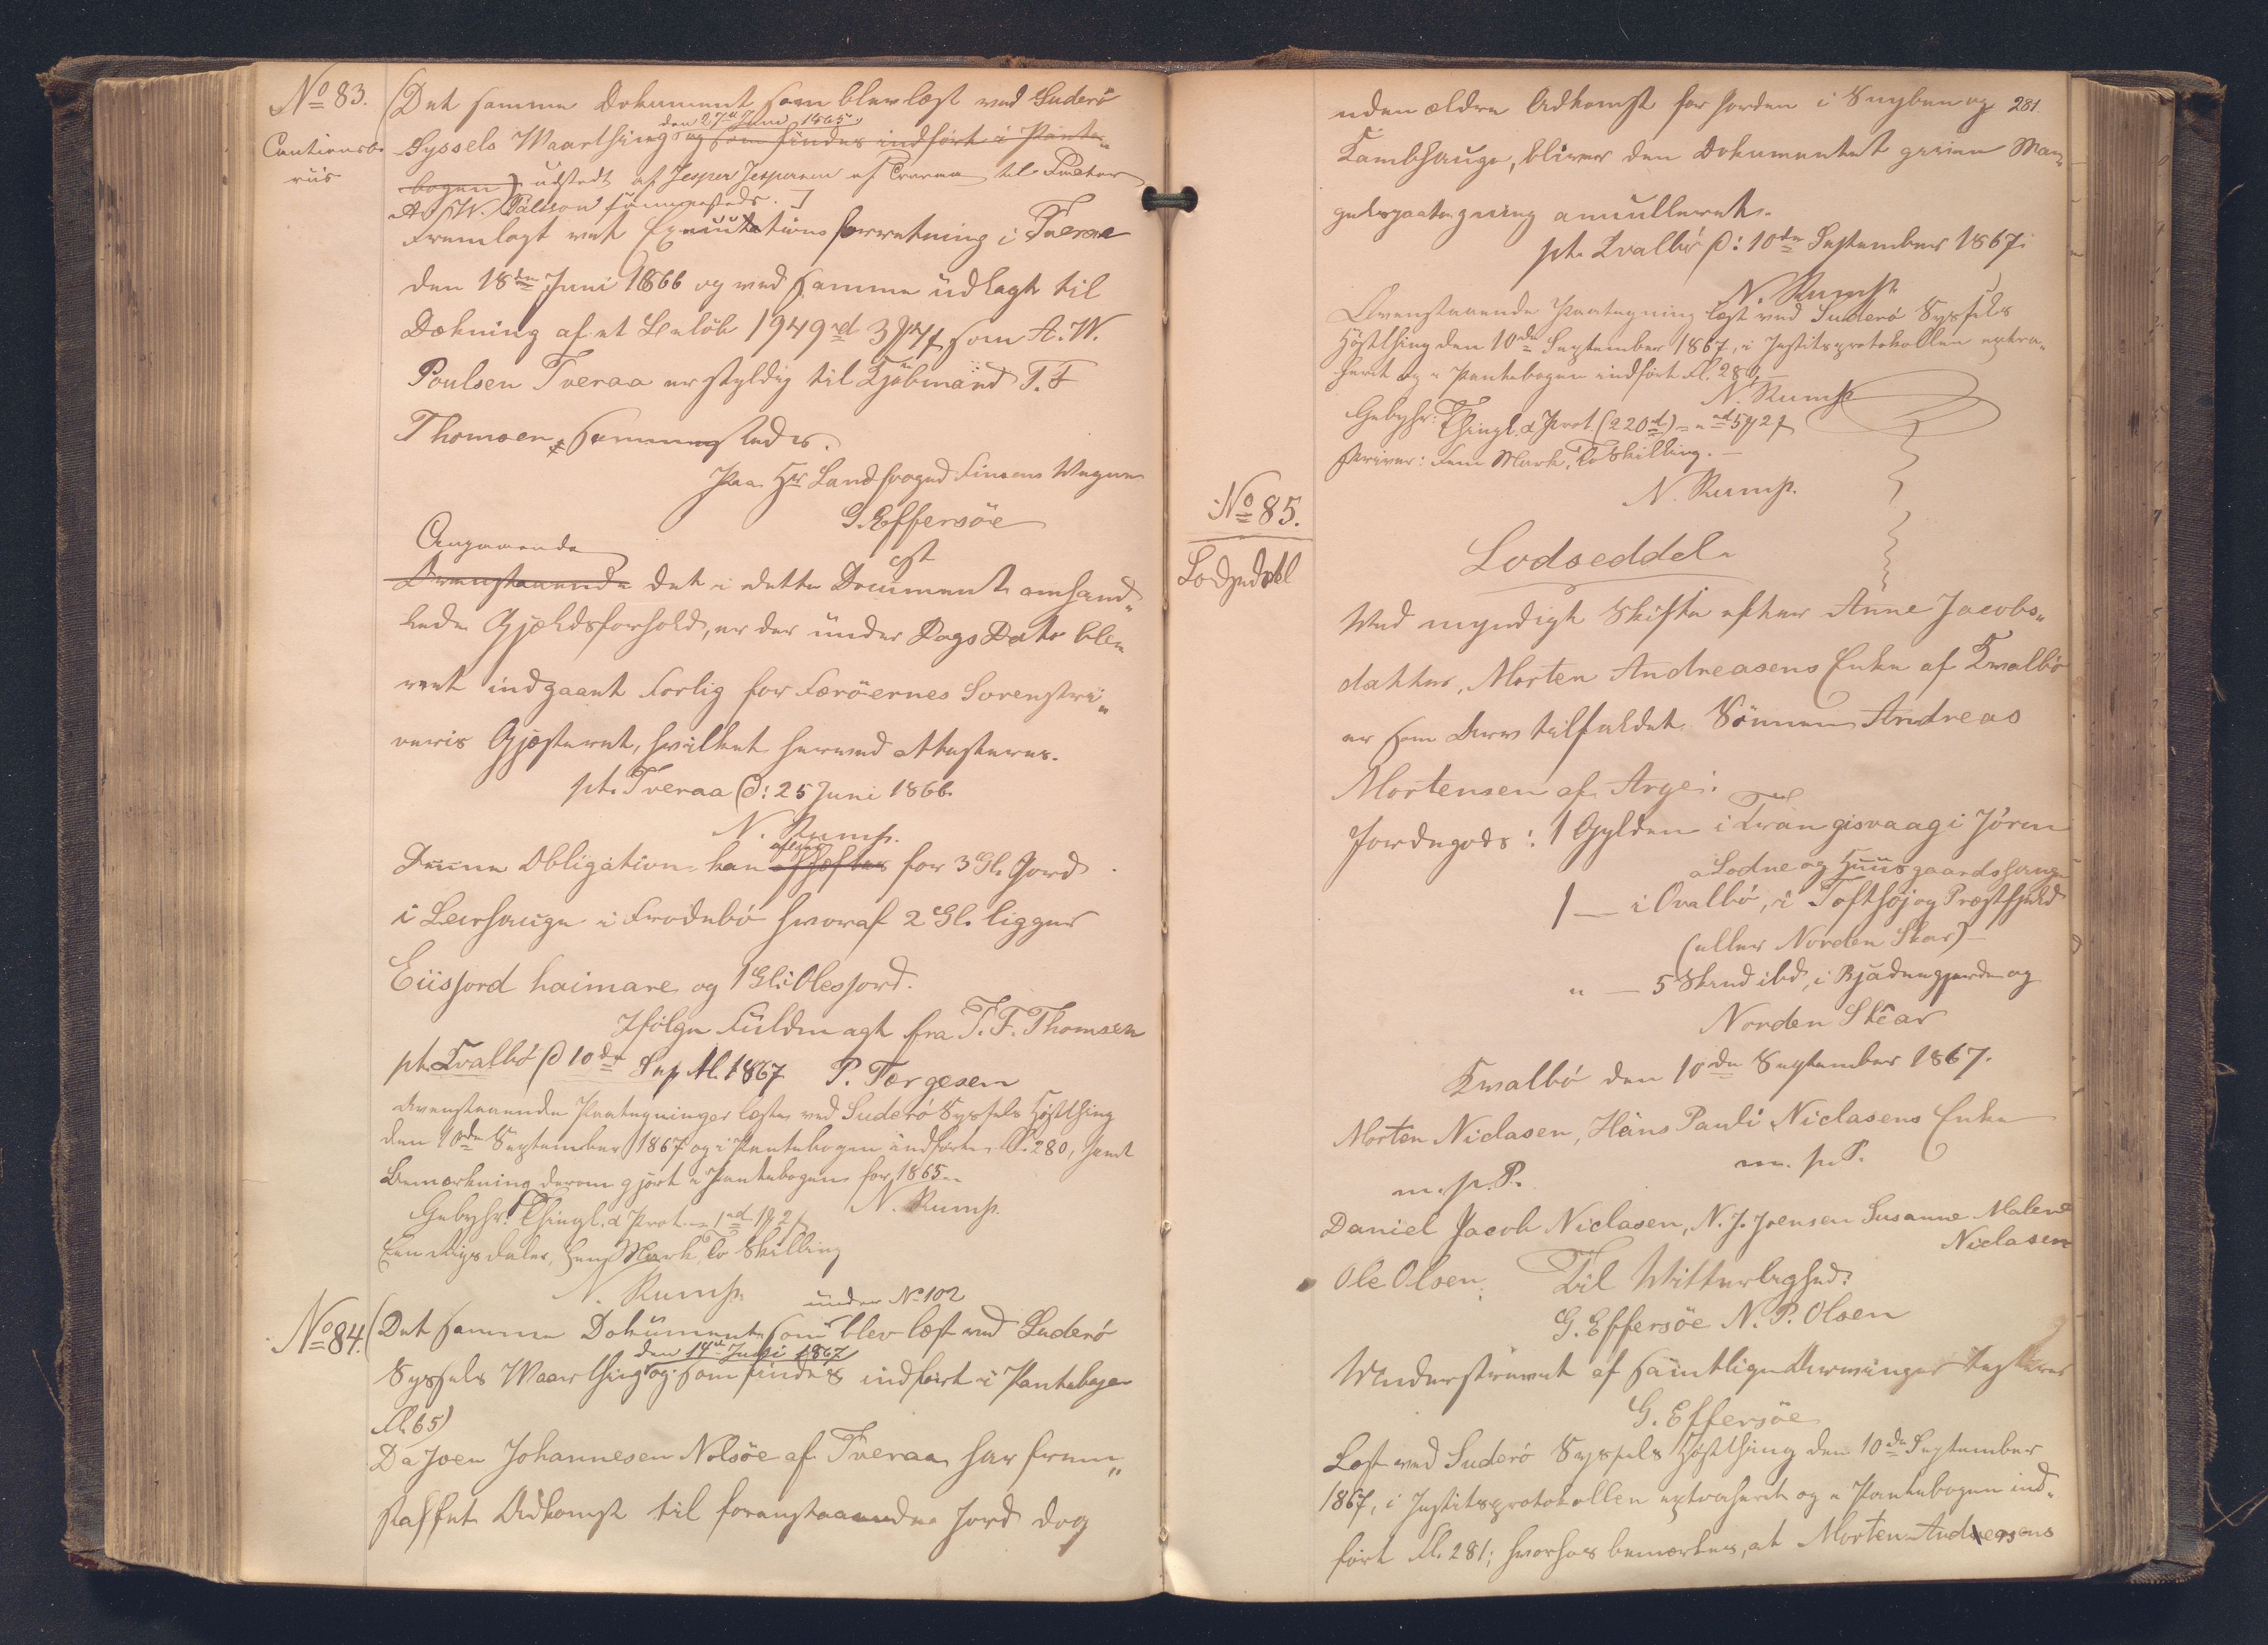 No 83.
Cautionsbe
viis
(Det samme Dokument som blev læst ved Suderö
den 27de Juni 1865
Syssels Waarthing og som findes indført i Pante-
bogen) udstedt af Jesper Jespersen af Tveraa til
A. W. Pålsson sammesteds.]
Fremlagt ved Executionsforretning i Tveraae
den 18de Juni 1866 og ved samme udlagt til
Dækning af et Beløb 1949rd 3 som A. W.
Poulsen Tveraa er skyldig til Kjøbmand T. F
Thomsen sammesteds.
Paa Hr Landfoged Finsens Vegne
G. Effersöe
cst
Angaaende
Ovenstaaende det i dette Document omhand-
lede Gjældsforhold, er der under Dags Dato ble-
vet indgaaet Forlig for Færöernes Sorenskri-
veris Gjesteret, hvilket herved attesteres.
pt. Tveraa d: 25 Juni 1866.
N. Rump.
aflyses
Denne Obligation kan afhæftes for 3 Gl. Jord
i Leirhauge i Frodebö hvoraf 2 Gl. ligger
Eiisjord haimare og 1 Gl: Olesjord.
Ifölge Fuldmagt fra T. F. Thomsen
pt. Kvalbö d 10de Septb. 1867 P. Torgesen
Ovenstaaende Paategninger læste ved Suderö Syssels Høstthing
den 10de September 1867 og i Pantebogen indførte Fl. 280, samt
Bemærkning derom gjort i Pantebogen for 1865.
Gebyhr: Thingl. & Prot. = 1rd 2 N. Rump.
Een Rigsdaler, fem Mark, to Skilling
N. Rump.
under No 102
No 84.
(Det samme Dokument som blev læst ved Suderö
den 14de Juni 1867
Syssels Waarthing og som findes indført i Pantebogen
Fl. 65)
Da Joen Johannesen Nolsöe af Tveraa har frem-
skaffet Adkomst til foranstaaende Jord dog
281
uden ældre Adkomst for Jorden i Snyben og
Kambhauge, bliver den Dokumentet given Man-
gelspaategning annulleret.
pt. Kvalbö d: 10de September 1867.
N. Rump
Ovenstaaende Paategning læst ved Suderö Syssels
Høstthing den 10de September 1867, i Justitsprotokollen extra-
heret og i Pantebogen indført Fl. 280,
N. Rump
Gebyhr: Thingl. & Prot. (220rd) = " rd 5 2
skriver: fem Mark, to Skilling.
N. Rump.
No 85.
Lodseddel
Lodseddel
Ved myndigt Skifte efter Anne Jacobs-
datter, Morten Andreasens Enke af Kvalbö
er som Arv tilfaldet Sönnen Andreas
Mortensen af Arge:
Jordegods: 1 Gylden i Trangisvaag i Jören
a Lodne og Huusgaardshauge
1 — i Qvalbö, i Tofthøj og Præstfjeld
(eller Norden Skar)
" — 5 Skind ibd, i Bjadnegjerde og
Norden Skear
Kvalbö den 10de September 1867.
Morten Niclasen, Hans Pauli Niclasens Enke
m. p. P. m. p. P.
Daniel Jacob Niclasen, N. J. Joensen Susanne Malene
Niclasen
Ole Olsen. Til Vitterlighed:
G. Effersöe N. P. Olsen
Underskrevet af samtlige Arvinger testerer
G. Effersöe
Læst ved Suderö Syssels Høstthing den 10de September
1867, i Justitsprotokollen extraheret og i Pantebogen ind-
ført Fl. 281; hvorhos bemærkes, at Morten Andreasens